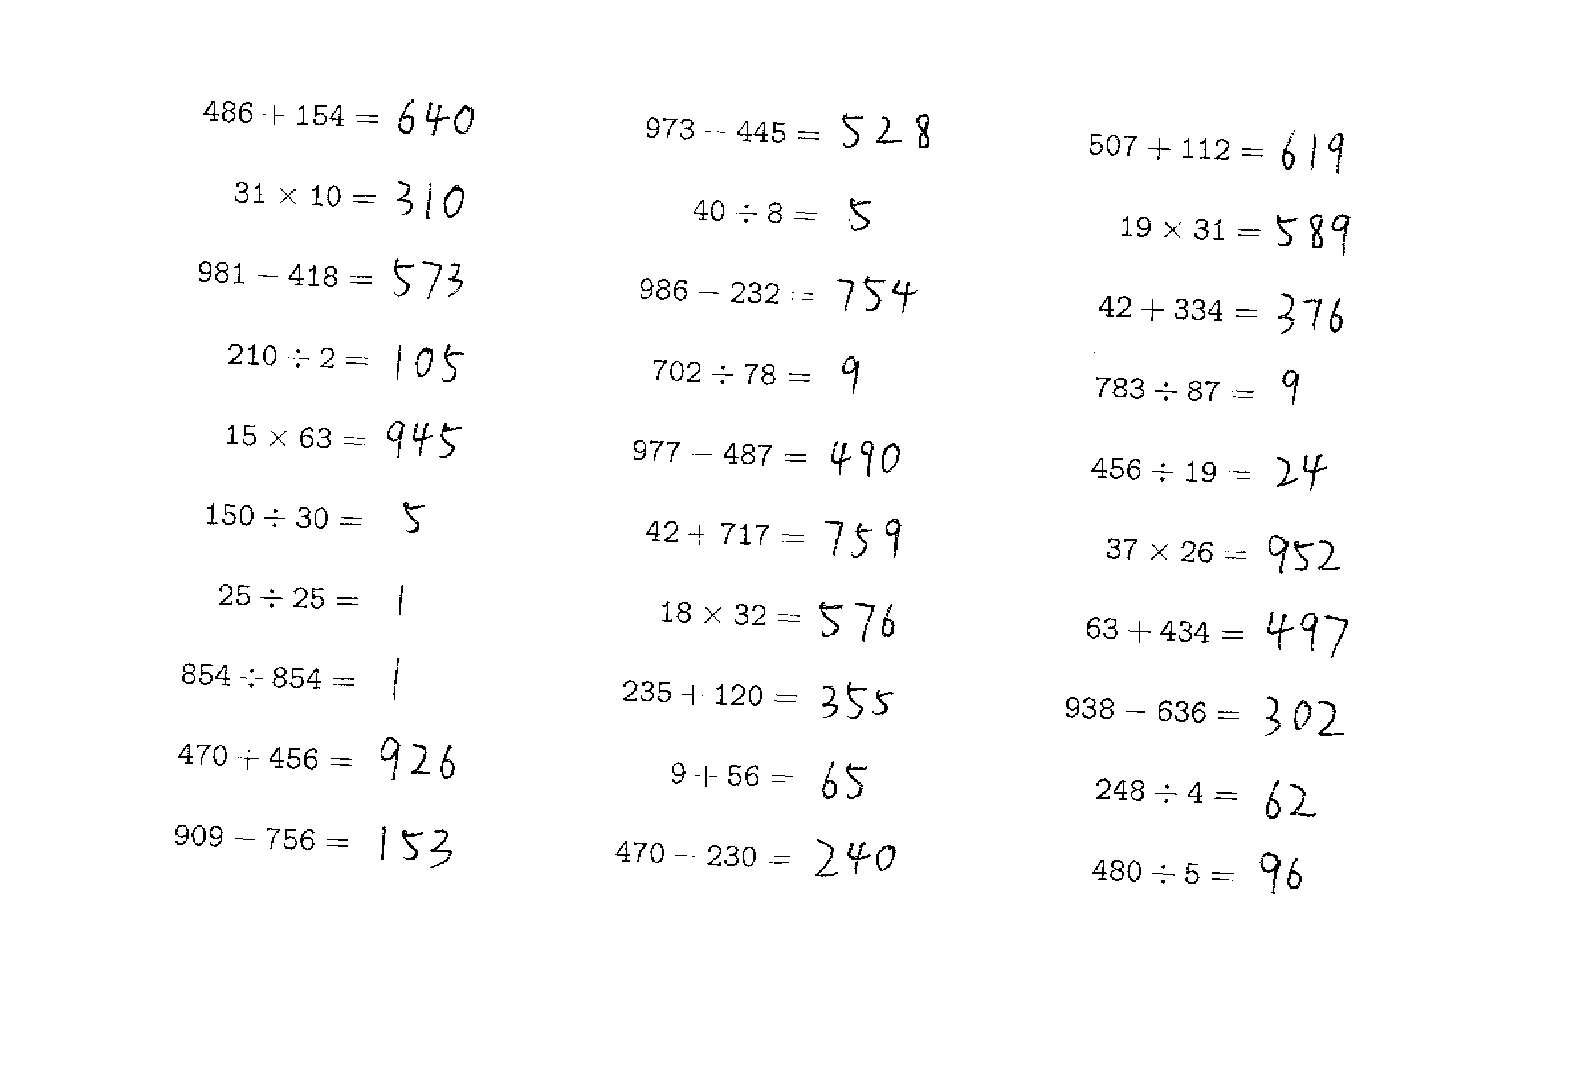 486 + 154 = 640
31 × 10 = 310
981 − 418 = 573
210 ÷ 2 = 105
15 × 63 = 945
150 ÷ 30 = 5
25 ÷ 25 = 1
854 ÷ 854 = 1
470 + 456 = 926
909 − 756 = 153
973 − 445 = 528
40 ÷ 8 = 5
986 − 232 = 754
702 ÷ 78 = 9
977 − 487 = 490
42 + 717 = 759
18 × 32 = 576
235 + 120 = 355
9 + 56 = 65
470 − 230 = 240
507 + 112 = 619
19 × 31 = 589
42 + 334 = 376
783 ÷ 87 = 9
456 ÷ 19 = 24
37 × 26 = 952
63 + 434 = 497
938 − 636 = 302
248 ÷ 4 = 62
480 ÷ 5 = 96